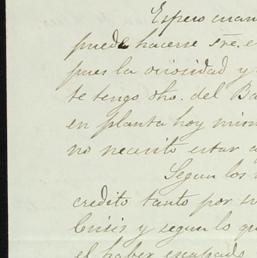 Espero cuan
puede hacerse sre, e
pues la ociosidad y
te tengo dho. del Ba
en planta hoy mism
no necesito estar a
Segun los
credito tanto por su
Crisis y segun lo qu
el haber escapado